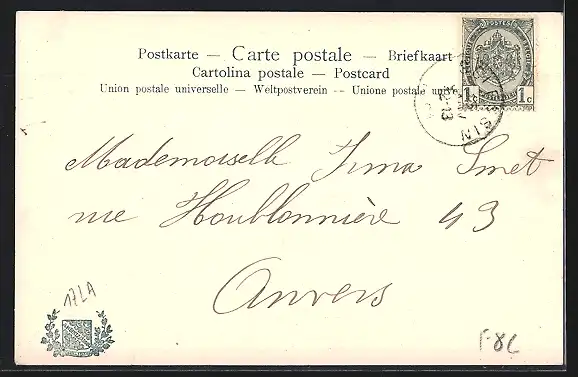 Postkarte — Carte postale — Briefkaart
Cartolina postale — Postcard
Union postale universelle — Weltpostverein -- Unione postale uni
POSTES
1c 1c
13
SIN
Mademoiselle Irma Smet
rue Houblonnière 43
Anvers
17LA
F8L